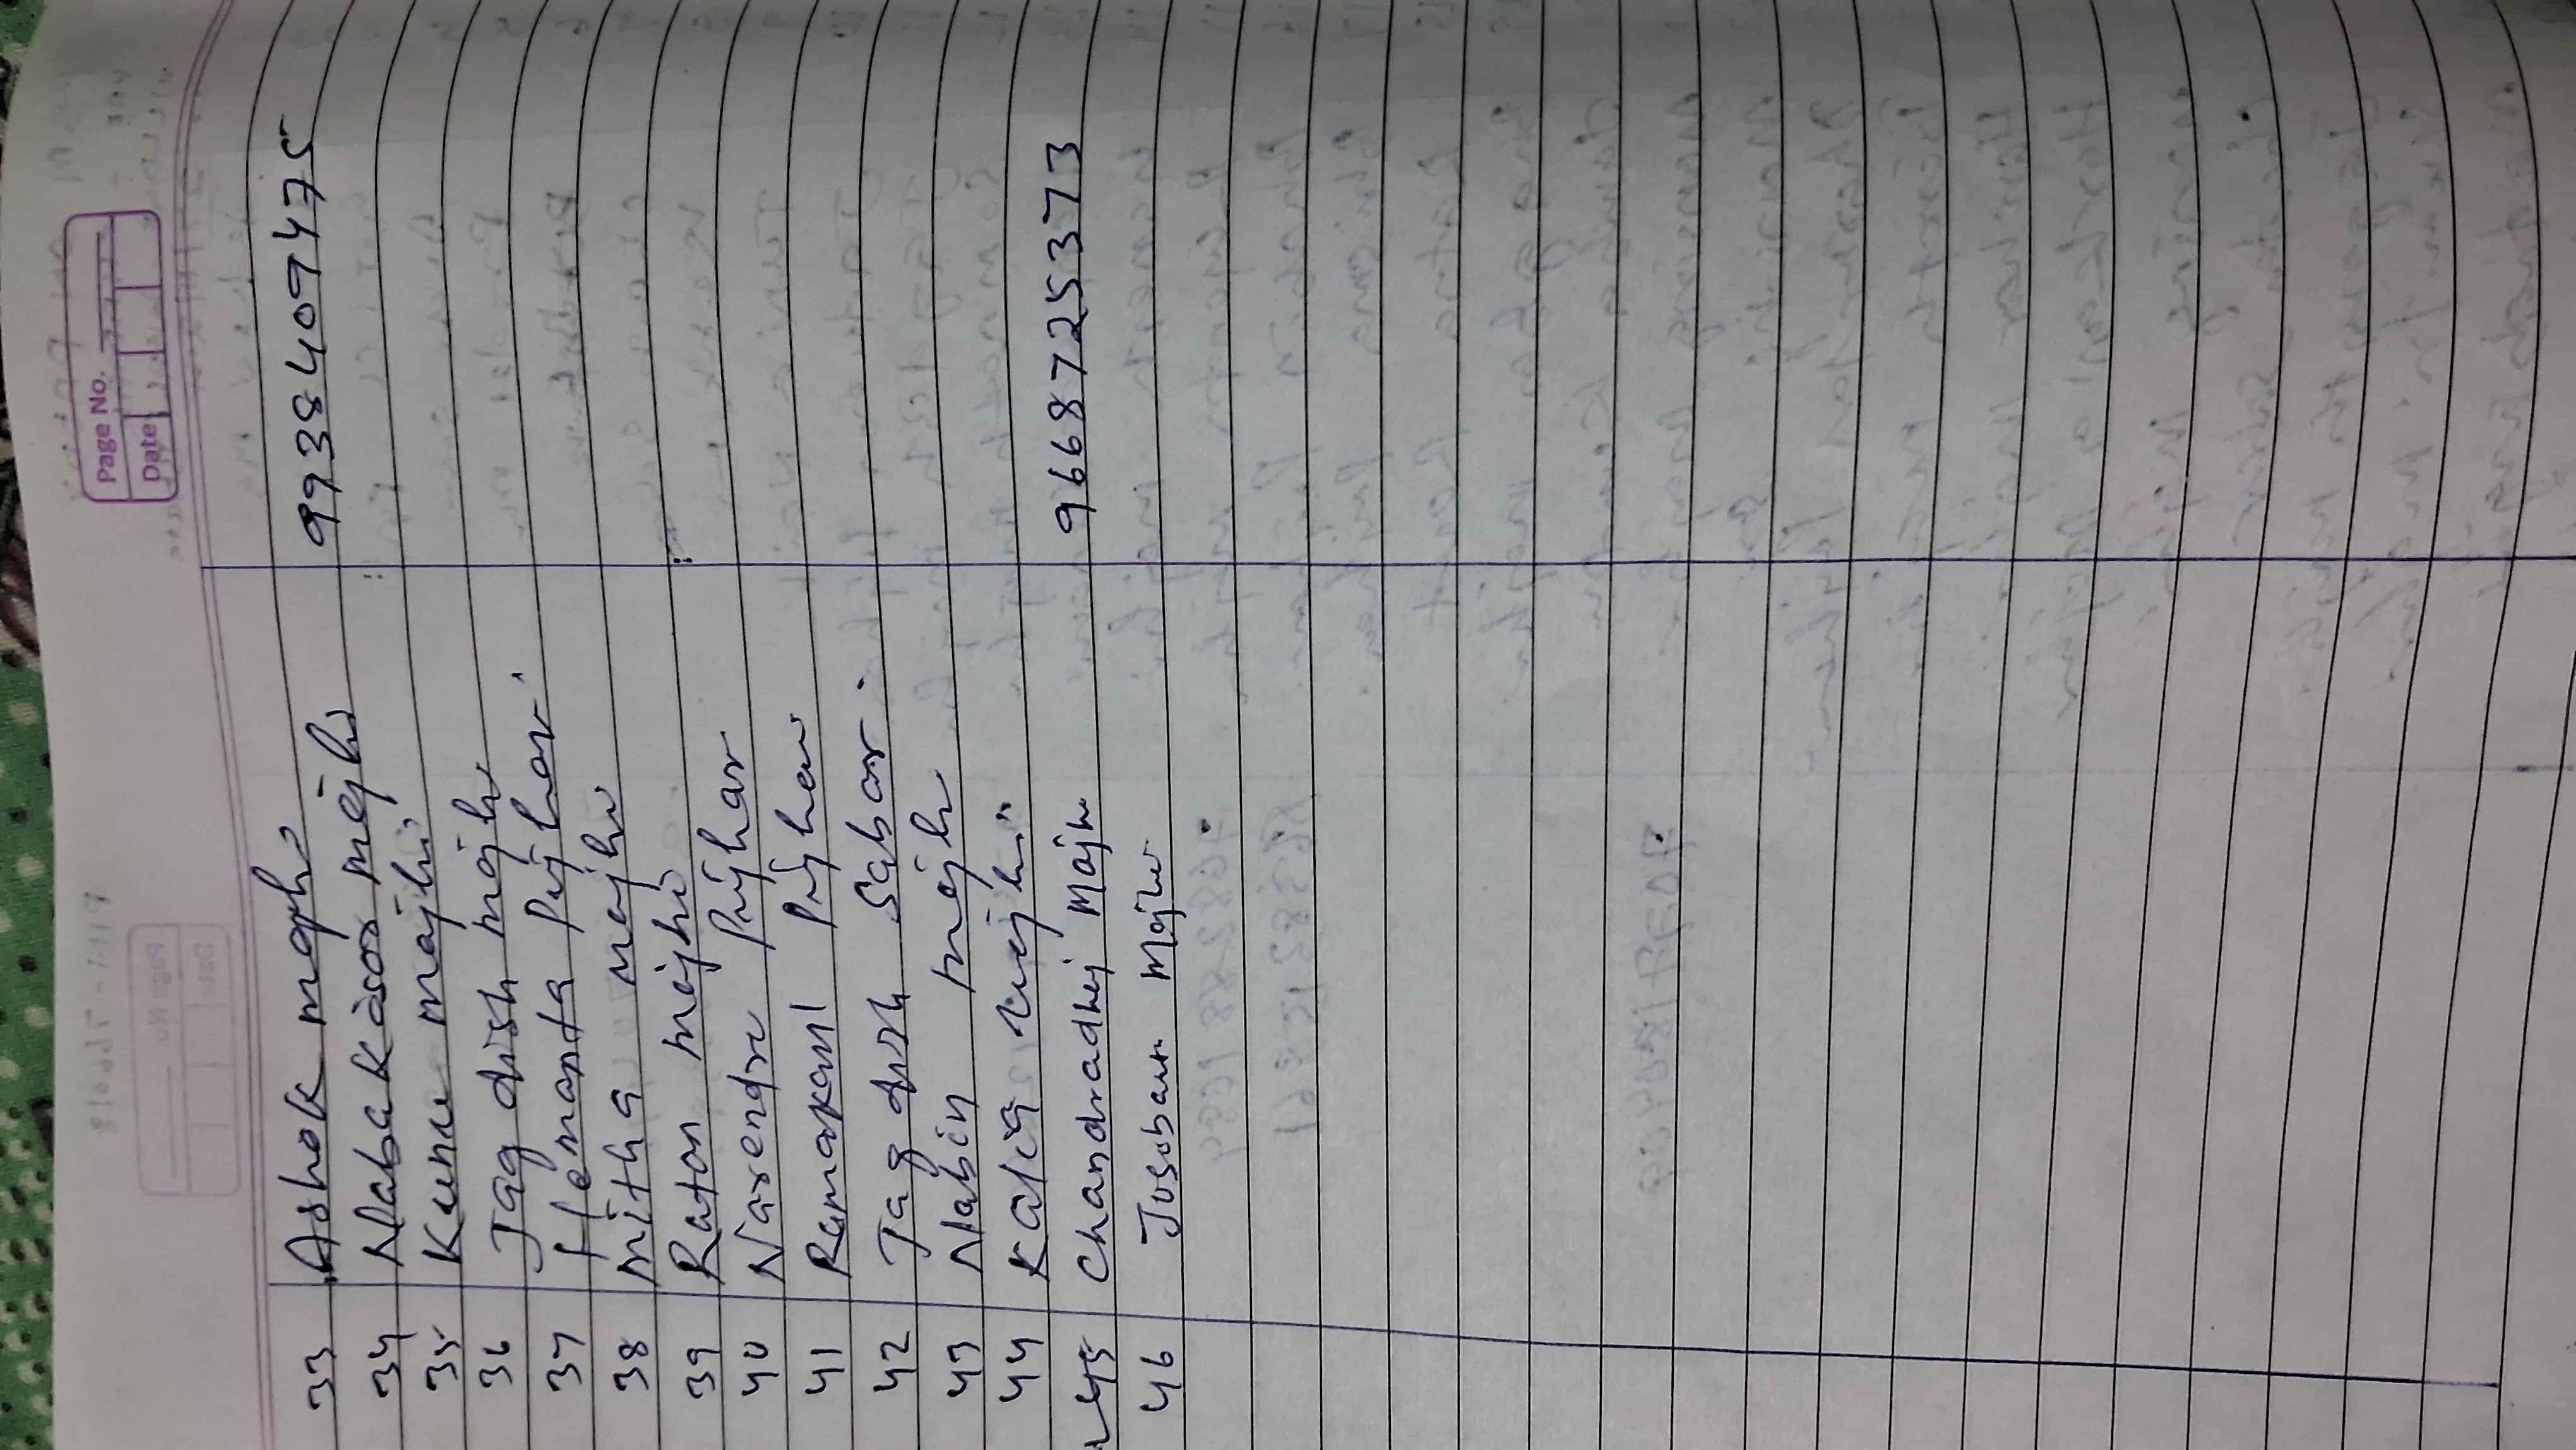 Page No.
Date
33 Ashok majhi 9938409475
34 Naba Kisor majhi
35 Kunu majhi
36 Jagdish majhi
37 Hemanta Pujhari
38 mitha majhi
39 Ratan majhi
40 Narendra Pujhar
41 Ramakant Pujhar
42 Jagdish Sabar
43 Nabin majhi
44 Kalia majhi
45 Chandradhej Majhi 9668725373
46 Majhi